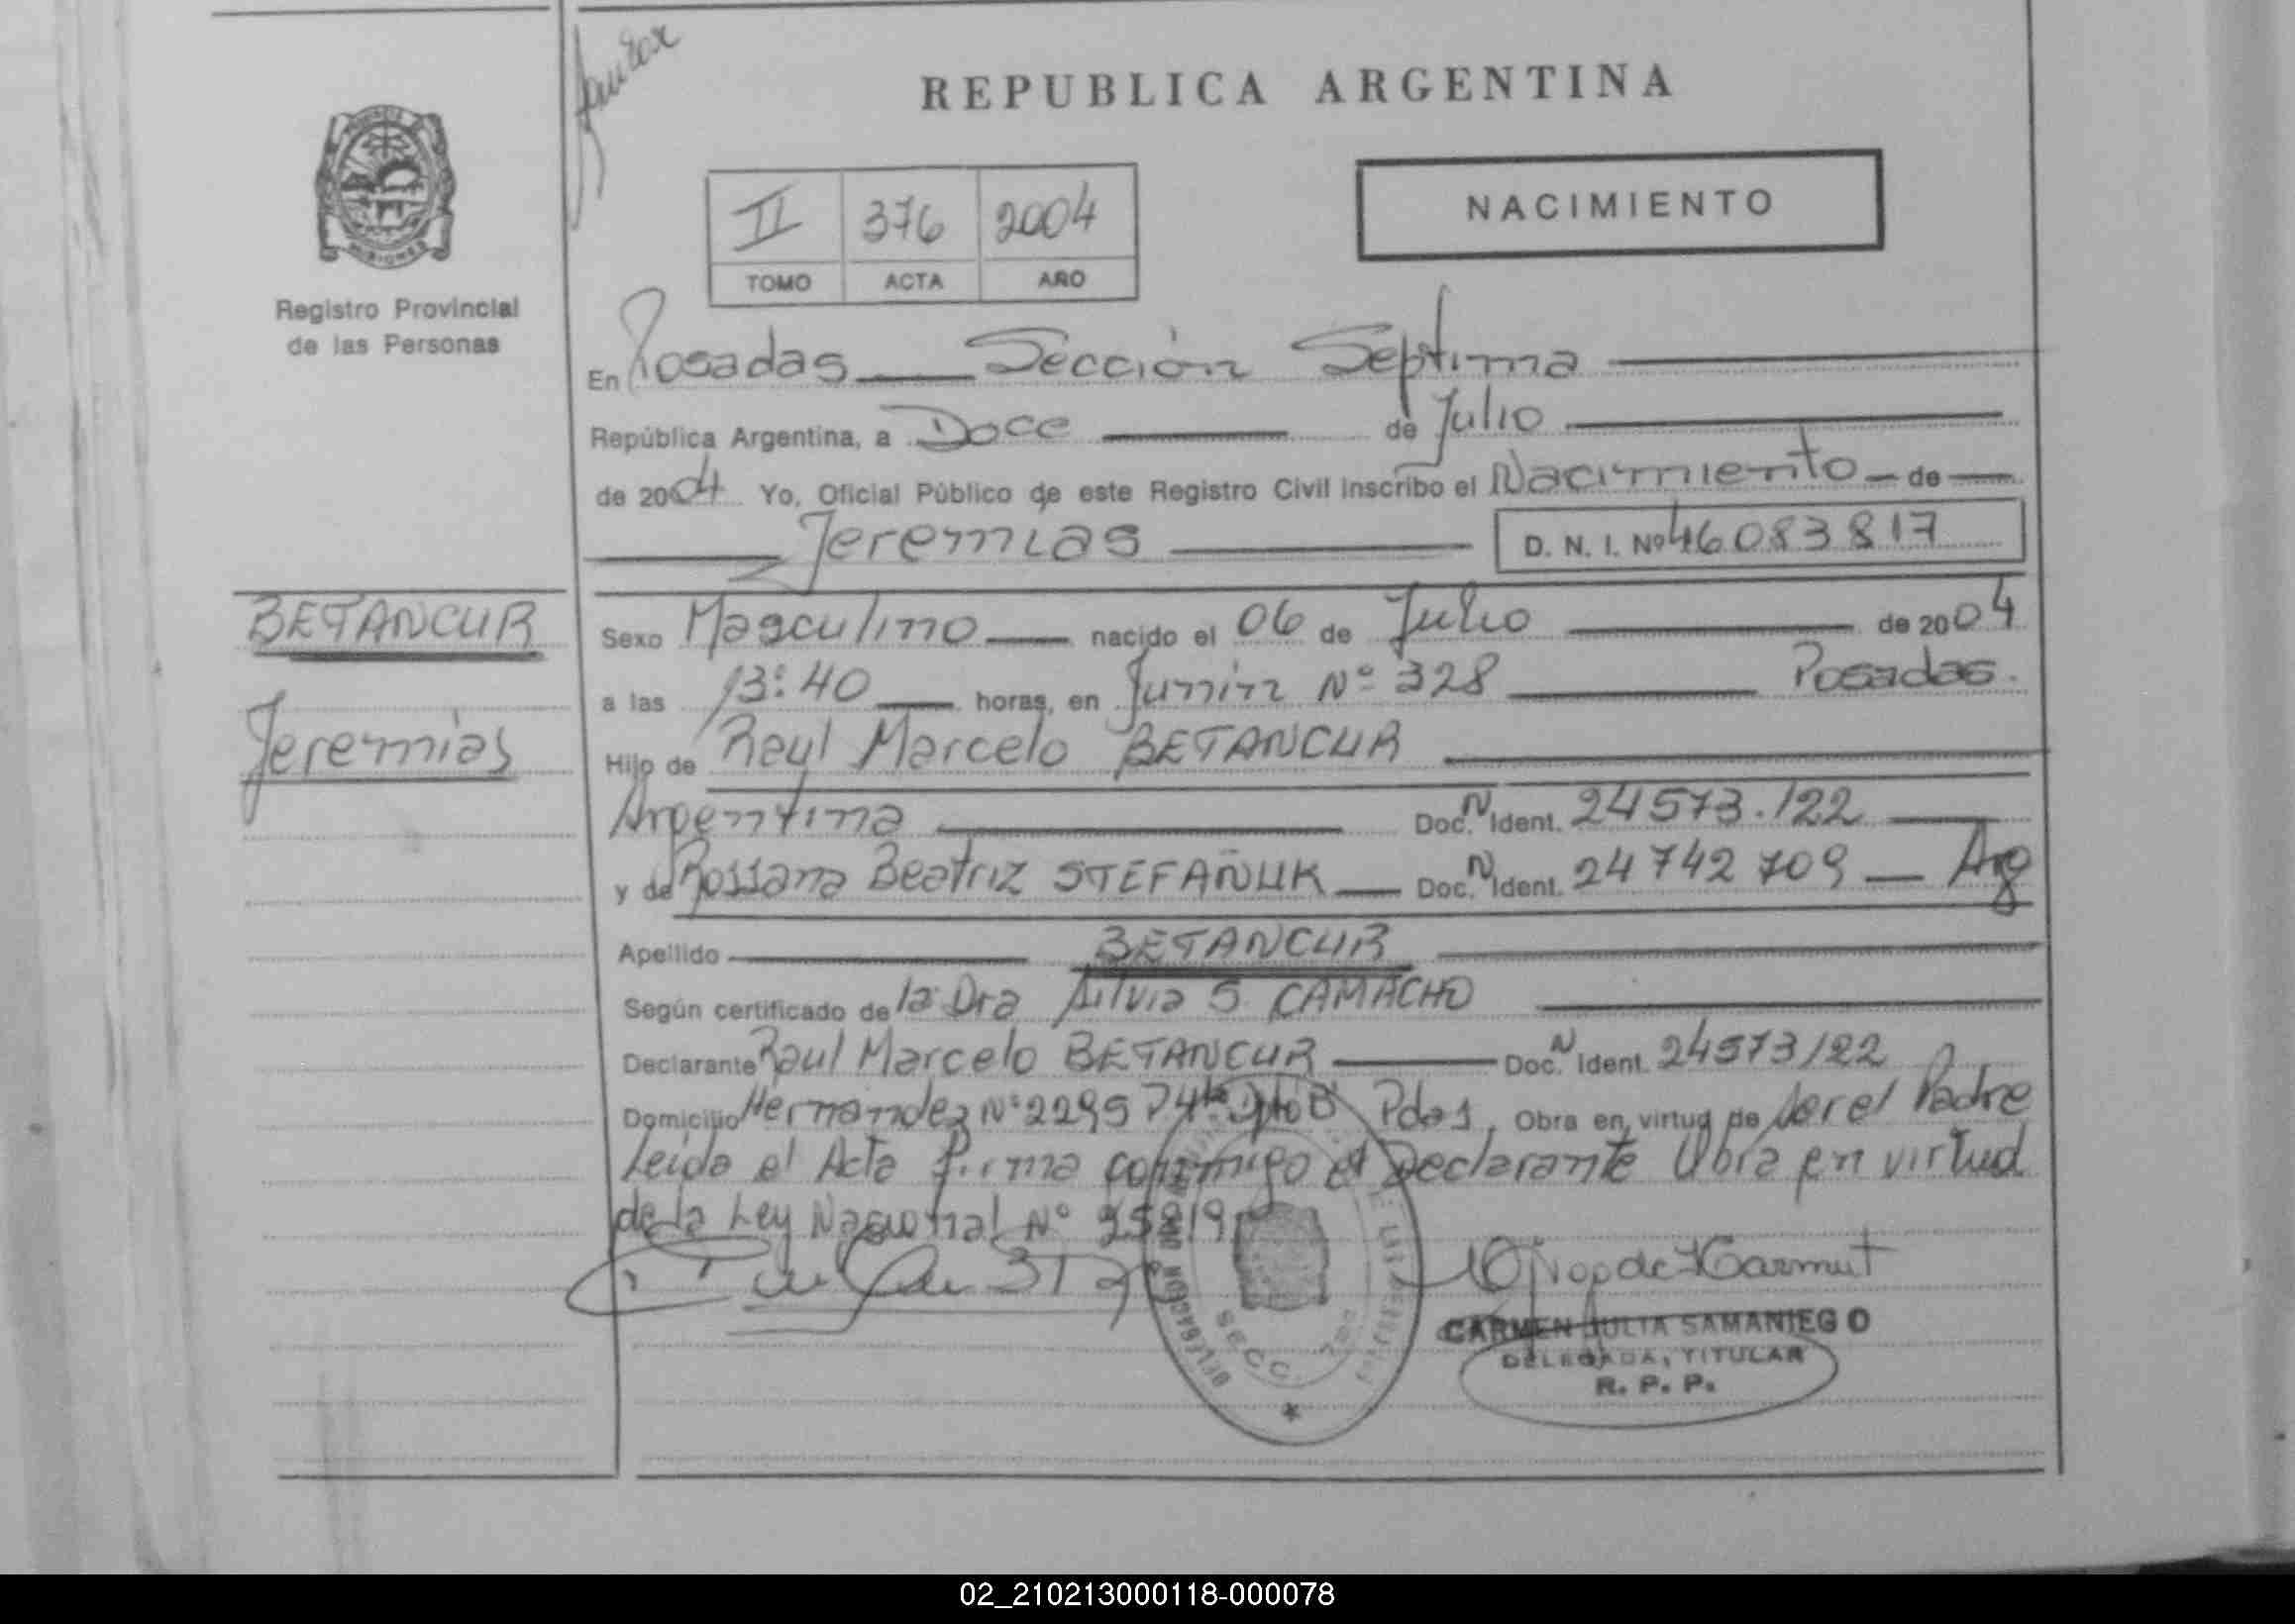 REPUBLICA ARGENTINA
Registro Provincial
de las Personas
II 376 2004
TOMO ACTA AÑO
NACIMIENTO
En Posadas Sección Septima
República Argentina, a Doce de Julio
de 2004 Yo, Oficial Público de este Registro Civil inscribo el Nacimiento de
Jeremias D. N. I. Nº 46083817
BETANCUR
Jeremias
Sexo Masculino nacido el 06 de Julio de 2004
a las 13:40 horas, en Junin Nº 328 Posadas.
Hijo de Raul Marcelo BETANCUR
Argentina Doc. N Ident. 24573.122
y de Rossana Beatriz STEFAÑUK Doc. N Ident. 24742709 Arg
Apellido BETANCUR
Según certificado de la Dra Silvia S. CAMACHO
Declarante Raul Marcelo BETANCUR Doc. N Ident. 24573122
Domicilio Hernandez Nº 2295 Dto B Pdas, Obra en virtud de ser el Padre
Leida el Acta firma conmigo el Declarante Obra en virtud
de la Ley Nacional Nº 25819
CARMEN JULIA SAMANIEGO
DELEGADA, TITULAR
R. P. P.
SECC. 7ma
02_210213000118-000078